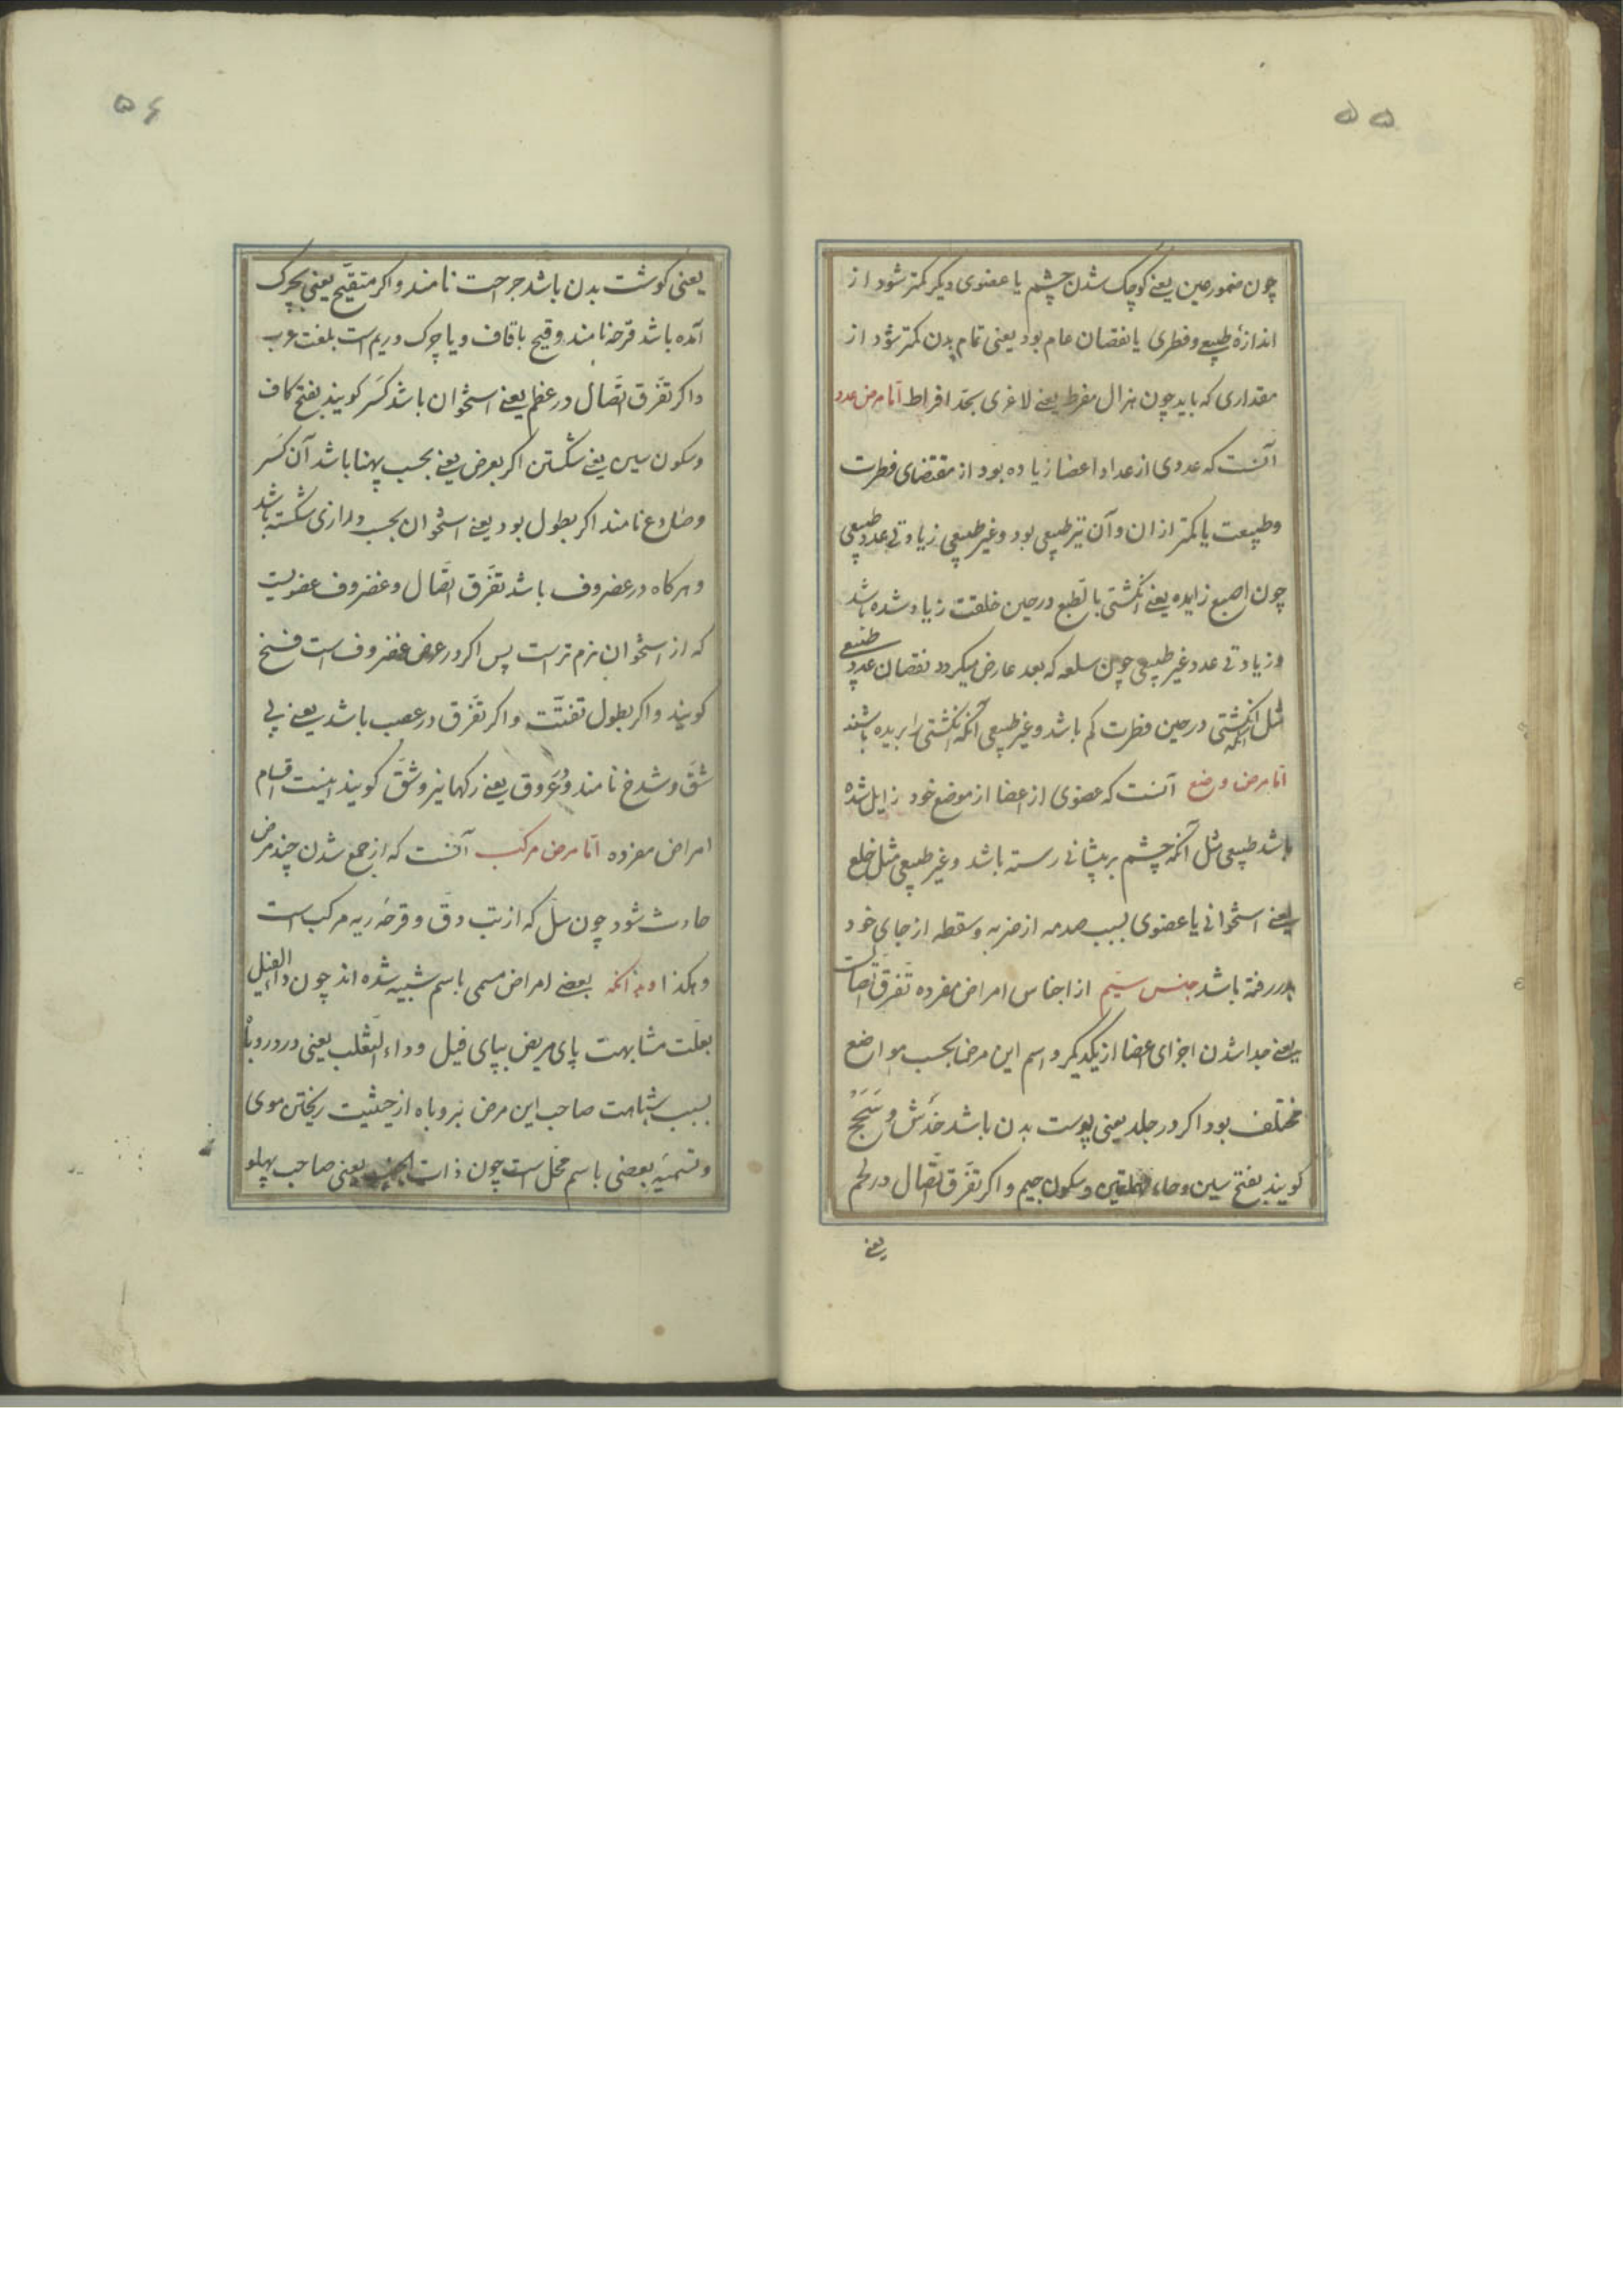 ۵۵
چون ضمور عین یعنے کوچک شدن چشم یا عضوی دیکر کمتر شود از
اندازهٔ طبیعے و فطری یا نقصان عام بود یعنی تمام بدن کمتر شود از
مقداری که باید چون هزال مفرط یعنے لاغری بحد افراط امّا مرض عدد
آنست که عددی از عداد اعضا زیاده بود از مقتضای فطرت
و طبیعت یا کمتر از ان و آن نیز طبیعی بود و غیر طبیعی زیادتی عدد طبیعی
چون اصبع زایده یعنے انکشتی بالطبع در حین خلقت زیاد شده باشد
و زیادتی عدد غیر طبیعی چون سلعه که بعد عارض میکردد نقصان عدد طبیعی
مثل آنکه انکشتی در حین فطرت کم باشد و غیر طبیعی آنکه انکشتی را بریده باشند
امّا مرض وضع آنست که عضوی از اعضا از موضع خود زایل شده
باشد طبیعی مثل آنکه چشم بر پیشانی رسته باشد و غیر طبیعی مثل خلع
یعنے استخوانی یا عضوی بسبب صدمه از ضربه و سقطه از جای خود
بدر رفته باشد جنس سیّم از اجناس امراض مفرده تفرّق اتصالست
یعنے جدا شدن اجزای اعضا از یکدیکر و اسم این مرض بحسب مواضع
مختلف بود اکر در جلد یعنی پوست بدن باشد خَدْش و سَحَجْ
کویند بفتح سین و حاء مهملتین و سکون جیم و اکر تفرّق اتّصال در لحم
یعنے
۵۶
یعنی کوشت بدن باشد جراحت نامند و اکر متقیّح یعنی بچرک
آمده باشد قرحه نامند و قیح با قاف و یا چرک و ریم است بلغت عرب
و اکر تفرّق اتّصال در عظم یعنے استخوان باشد کَسْر کویند بفتح کاف
و سکون سین یعنے شکستن اکر بعرض یعنے بحسب پهنا باشد آن کسر
و صدوع نامند اکر بطول بود یعنے استخوان بحسب درازی شکسته باشد
و هرکاه در غضروف باشد تفرّق اتّصال و غضروف عضویست
که از استخوان نرم تر است پس اکر در عرض غضروف است فسخ
کویند و اکر بطول تفتّت و اکر تفرّق در عصب باشد یعنے پی
شقّ و شدخ نامند و عُروق یعنے رکها نیز و شقّ کویند اینست اقسام
امراض مفرده امّا مرض مرکب آنست که از جمع شدن چند مرض
حادث شود چون سلّ که از تب دقّ و قرحهٔ ریه مرکب است
و هکذا و بدانکه بعضے امراض مسمی باسم شبیه شده اند چون داء الفیل
بعلّت مشابهت پای مریض بپای فیل و داء الثعلب یعنی درد روباه
بسبب شباهت صاحب این مرض بروباه از حیثیت ریختن موی
و تسمیهٔ بعضی باسم محل است چون ذات الجنب یعنی صاحب پهلو